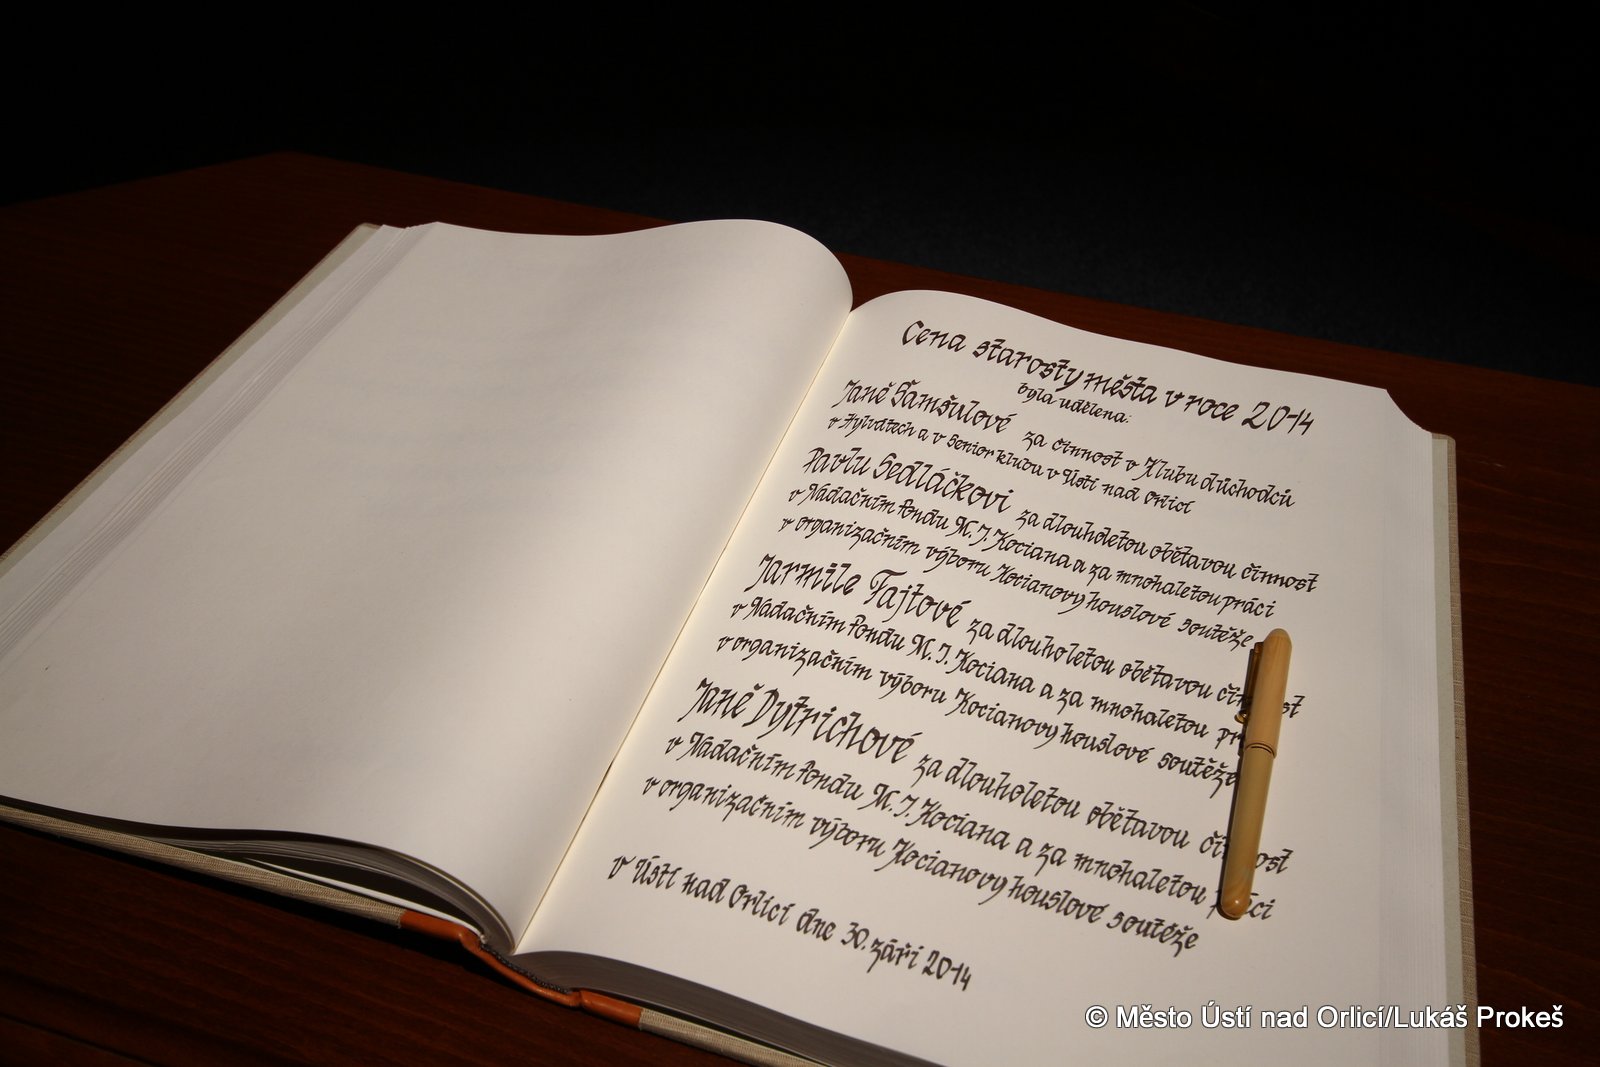 Cena starosty města v roce 2014
byla udělena:
Janě Samšulové za činnost v Klubu důchodců
v Hylvátech a v Senior klubu v Ústí nad Orlicí
Pavlu Sedláčkovi za dlouholetou obětavou činnost
v Nadačním fondu M. J. Kociana a za mnohaletou práci
v organizačním výboru Kocianovy houslové soutěže
Jarmile Tajtové za dlouholetou obětavou činnost
v Nadačním fondu M. J. Kociana a za mnohaletou
v organizačním výboru Kocianovy houslové soutěže
Janě Dytrichové za dlouholetou obětavou činnost
v Nadačním fondu M. J. Kociana a za mnohaletou práci
v organizačním výboru Kocianovy houslové soutěže
v Ústí nad Orlicí dne 30. září 2014
© Město Ústí nad Orlicí/Lukáš Prokeš